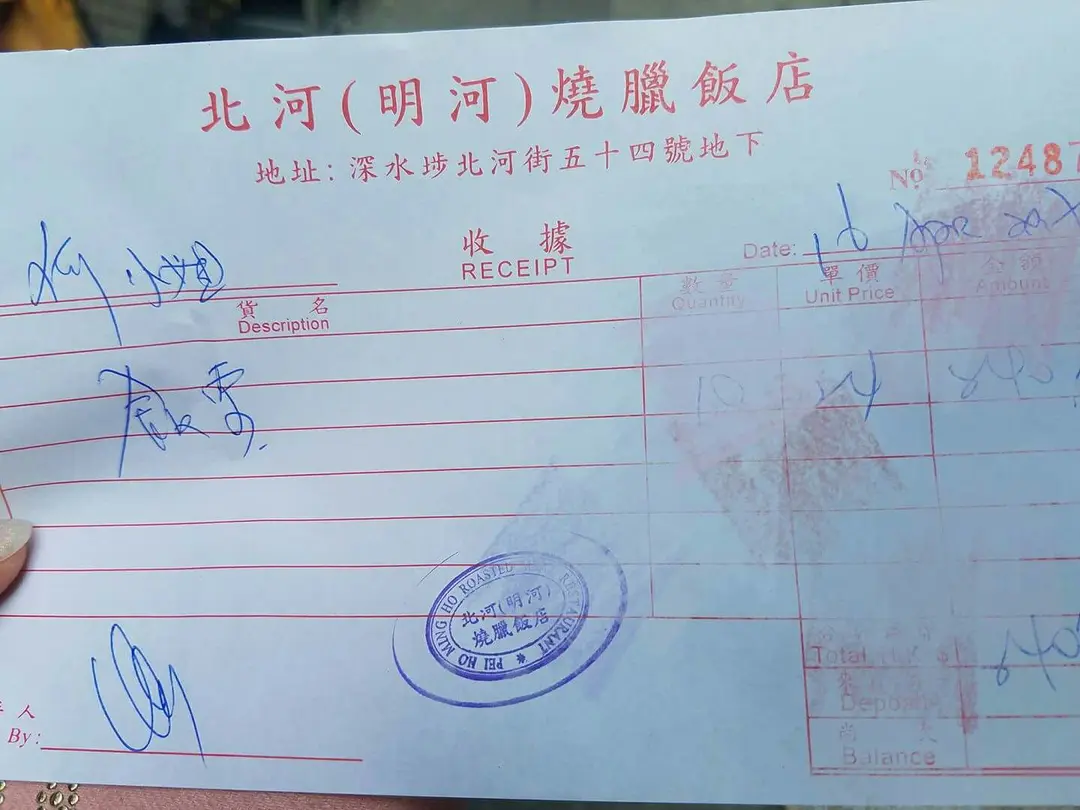 北河(明河)燒臘飯店
地址:深水埗北河街五十四號地下
Nº 12487
收據
RECEIPT
Date: 16 Apr
小姐
貨名
Description
數量
Quantity
單價
Unit Price
金額
Amount
飯票
10
Total
Deposit
Balance
PEI HO MING HO ROASTED RESTAURANT
北河(明河)
燒臘飯店
人
By: